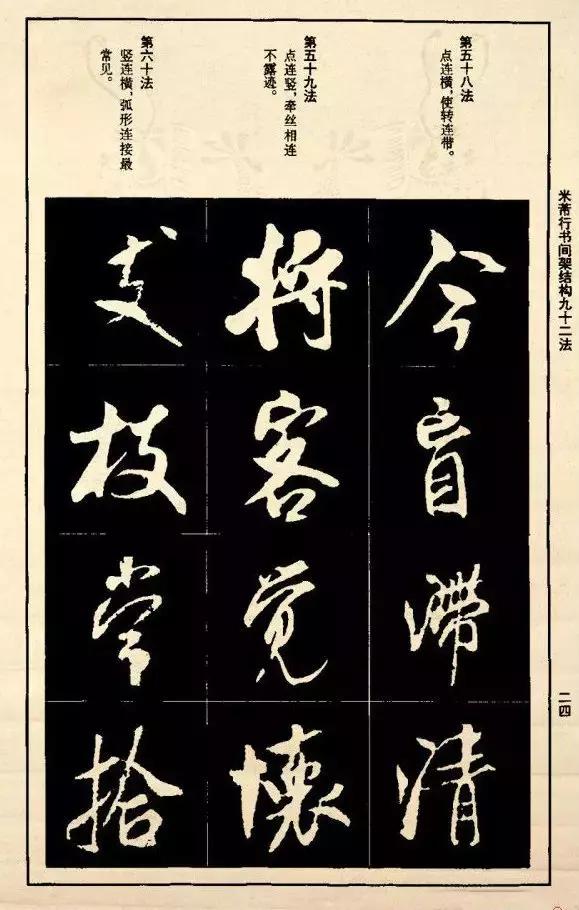 米芾行书间架结构九十二法
二四
第五十八法
点连横，使转连带。
第五十九法
点连竖，牵丝相连
不露迹。
第六十法
竖连横，弧形连接最
常见。
今盲滞清
将客觉懷
支枝常拾